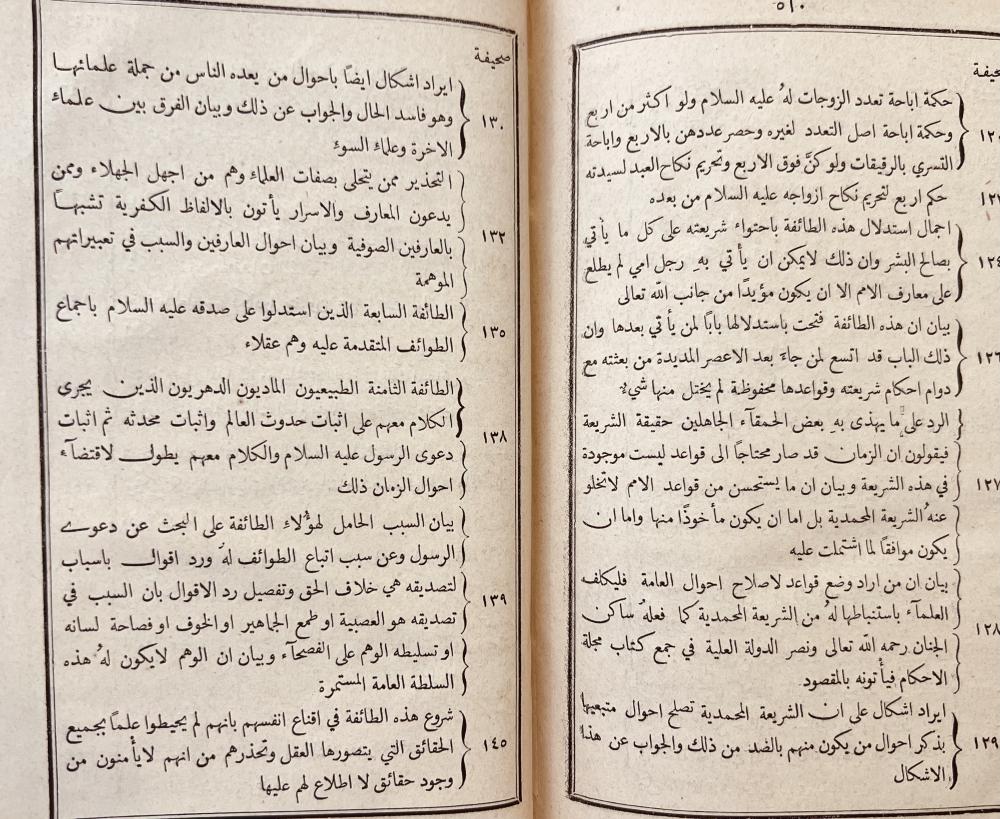 ٥١٠
صحيفة
حكمة اباحة تعدد الزوجات لهُ عليه السلام ولو اكثر من اربع
وحكمة اباحة اصل التعدد لغيره وحصر عددهن بالاربع واباحة
التسري بالرقيقات ولو كنَّ فوق الاربع وتحريم نكاح العبد لسيدته
حكم اربع لتحريم نكاح ازواجه عليه السلام من بعده
١٢٤ اجمال استدلال هذه الطائفة باحتواء شريعته على كل ما يأتي
بصالح البشر وان ذلك لايمكن ان يأتي بهِ رجل امي لم يطلع
على معارف الامم الا ان يكون مؤيدًا من جانب الله تعالى
١٢٦ بيان ان هذه الطائفة فتحت باستدلالها بابًا لمن يأتي بعدها وان
ذلك الباب قد اتسع لمن جاءَ بعد الاعصر المديدة من بعثته مع
دوام احكام شريعته وقواعدها محفوظة لم يختل منها شيءٌ
١٢٧ الرد على ما يهذى بهِ بعض الحمقآء الجاهلين حقيقة الشريعة
فيقولون ان الزمان قد صار محتاجًا الى قواعد ليست موجودة
في هذه الشريعة وبيان ان ما يستحسن من قواعد الامم لاتخلو
عنهُ الشريعة المحمدية بل اما ان يكون مأخوذًا منها واما ان
يكون موافقًا لما اشتملت عليه
١٢٨ بيان ان من اراد وضع قواعد لاصلاح احوال العامة فليكلف
العلمآء باستنباطها لهُ من الشريعة المحمدية كما فعلهُ ساكن
الجنان رحمه الله تعالى ونصر الدولة العلية في جمع كتاب مجلة
الاحكام فيأتونه بالمقصود
١٢٩ ايراد اشكال على ان الشريعة المحمدية تصلح احوال متبعيها
بذكر احوال من يكون منهم بالضد من ذلك والجواب عن هذا
الاشكال
صحيفة
١٣٠ ايراد اشكال ايضًا باحوال من يعده الناس من جملة علمائها
وهو فاسد الحال والجواب عن ذلك وبيان الفرق بين علماء
الاخرة وعلماء السوء
١٣٢ التحذير ممن يتحلى بصفات العلماء وهم من اجهل الجهلاء وممن
يدعون المعارف والاسرار يأتون بالالفاظ الكفرية تشبهاً
بالعارفين الصوفية وبيان احوال العارفين والسبب في تعبيراتهم
الموهمة
١٣٥ الطائفة السابعة الذين استدلوا على صدقه عليه السلام باجماع
الطوائف المتقدمة عليه وهم عقلاء
١٣٨ الطائفة الثامنة الطبيعيون الماديون الدهريون الذين يجرى
الكلام معهم على اثبات حدوث العالم واثبات محدثه ثم اثبات
دعوى الرسول عليه السلام والكلام معهم يطول لاقتضآء
احوال الزمان ذلك
١٣٩ بيان السبب الحامل لهؤلاء الطائفة على البحث عن دعوے
الرسول وعن سبب اتباع الطوائف لهُ ورد اقوال باسباب
لتصديقه هي خلاف الحق وتفصيل رد الاقوال بان السبب في
تصديقه هو العصبية او طمع الجماهير او الخوف او فصاحة لسانه
او تسليطه الوهم على الفصحآء وبيان ان الوهم لايكون لهُ هذه
السلطة العامة المستمرة
١٤٥ شروع هذه الطائفة في اقناع انفسهم بانهم لم يحيطوا علماً بجميع
الحقائق التي يتصورها العقل وتحذرهم من انهم لايأمنون من
وجود حقائق لا اطلاع لهم عليها